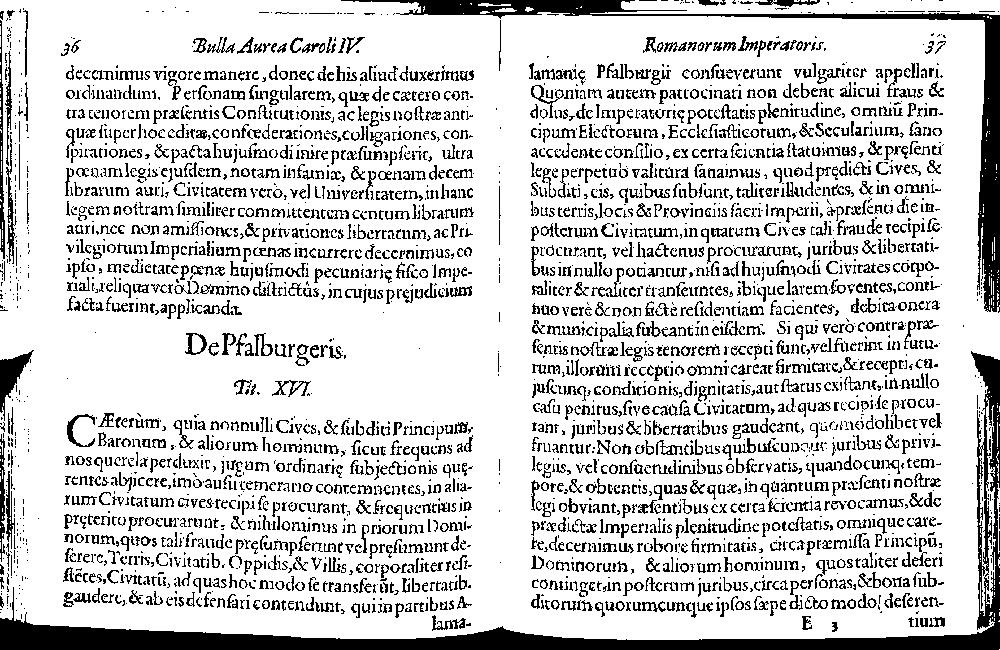 36 Bulla Aurea Caroli IV.
decernimus vigore manere, donec de his aliud duxerimus
ordinandum. Personam singularem, quæ de cætero con-
tra tenorem præsentis Constitutionis, ac legis nostræ anti-
quæ super hoc editæ, confœderationes, colligationes, con-
spirationes, & pacta hujusmodi inire præsumpserit, ultra
pœnam legis ejusdem, notam infamiæ, & pœnam decem
librarum auri, Civitatem verò, vel Universitatem, in hanc
legem nostram similiter committentem centum librarum
auri, nec non amissiones, & privationes libertatum, ac Pri-
vilegiorum Imperialium pœnas incurrere decernimus, eo
ipso, medietate pœnæ hujusmodi pecuniarię fisco Impe-
riali, reliqua verò Domino districtûs, in cujus pręjudicium
facta fuerint, applicanda.
De Pfalburgeris.
Tit. XVI.
CÆterùm, quia nonnulli Cives, & subditi Principum,
Baronum, & aliorum hominum, sicut frequens ad
nos querela perduxit, jugum ordinarię subjectionis quę-
rentes abjicere, imò ausu temerario contemnentes, in alia-
rum Civitatum cives recipi se procurant, & frequentius in
pręterito procurarunt, & nihilominus in priorum Domi-
norum, quos tali fraude pręsumpserunt vel pręsumunt de-
serere, Terris, Civitatib. Oppidis, & Villis, corporaliter resi-
stẽtes, Civitatũ, ad quas hoc modo se transferũt, libertatib.
gaudere, & ab eis defensari contendunt, qui in partibus A-
lama-
Romanorum Imperatoris. 37
lamanię Pfalburgii consueverunt vulgariter appellari.
Quoniam autem patrocinari non debent alicui fraus &
dolus, de Imperatorię potestatis plenitudine, omniũ Prin-
cipum Electorum, Ecclesiasticorum, & Secularium, sano
accedente consilio, ex certa scientia statuimus, & pręsenti
lege perpetuò valitura sancimus, quod prędicti Cives, &
Subditi, eis, quibus subsunt, taliter illudentes, & in omni-
bus terris, locis & Provinciis sacri Imperii, à præsenti die in-
posterum Civitatum, in quatum Cives tali fraude recipi se
procurant, vel hactenus procurarunt, juribus & libertati-
bus in nullo potiantur, nisi ad hujusmodi Civitates corpo-
raliter & realiter transeuntes, ibique larem foventes, conti-
nuo verè & non fictè residentiam facientes, debita onera
& municipalia subeant in eisdem. Si qui verò contra præ-
sentis nostræ legis tenorem recepti sunt, vel fuerint in futu-
rum, illorum receptio omni careat firmitate, & recepti, cu-
juscunq; conditionis, dignitatis, aut status existant, in nullo
casu penitus, sive causa Civitatum, ad quas recipi se procu-
rant, juribus & libertatibus gaudeant, quomodolibet vel
fruantur: Non obstantibus quibuscunque juribus & privi-
legiis, vel consuetudinibus observatis, quandocunq; tem-
pore, & obtentis, quas & quæ, in quantum præsenti nostræ
legi obviant, præsentibus ex certa scientia revocamus, & de
prædictæ Imperialis plenitudine potestatis, omnique care-
re, decernimus robore firmitatis, circa præmissa Principũ,
Dominorum, & aliorum hominum, quos taliter deseri
continget, in posterum juribus, circa personas, & bona sub-
ditorum quorumcunque ipsos sæpe dicto modo deseren-
E 3 tium